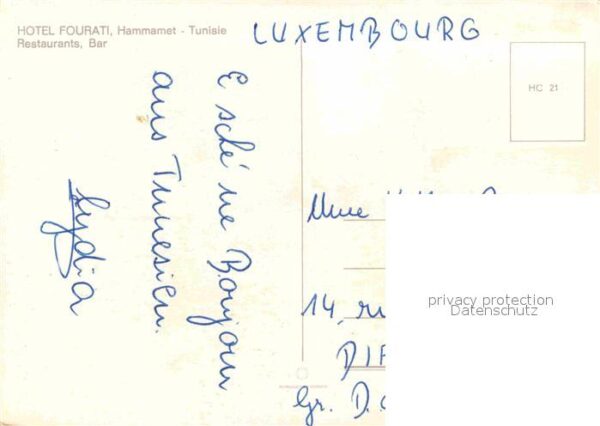 HOTEL FOURATI, Hammamet - Tunisie
Restaurants, Bar
LUXEMBOURG
HC 21
E sché ne Bonjour
aus Tunesien.
Lydia
Mme
14, ru
DIF
Gr. D.
privacy protection
Datenschutz